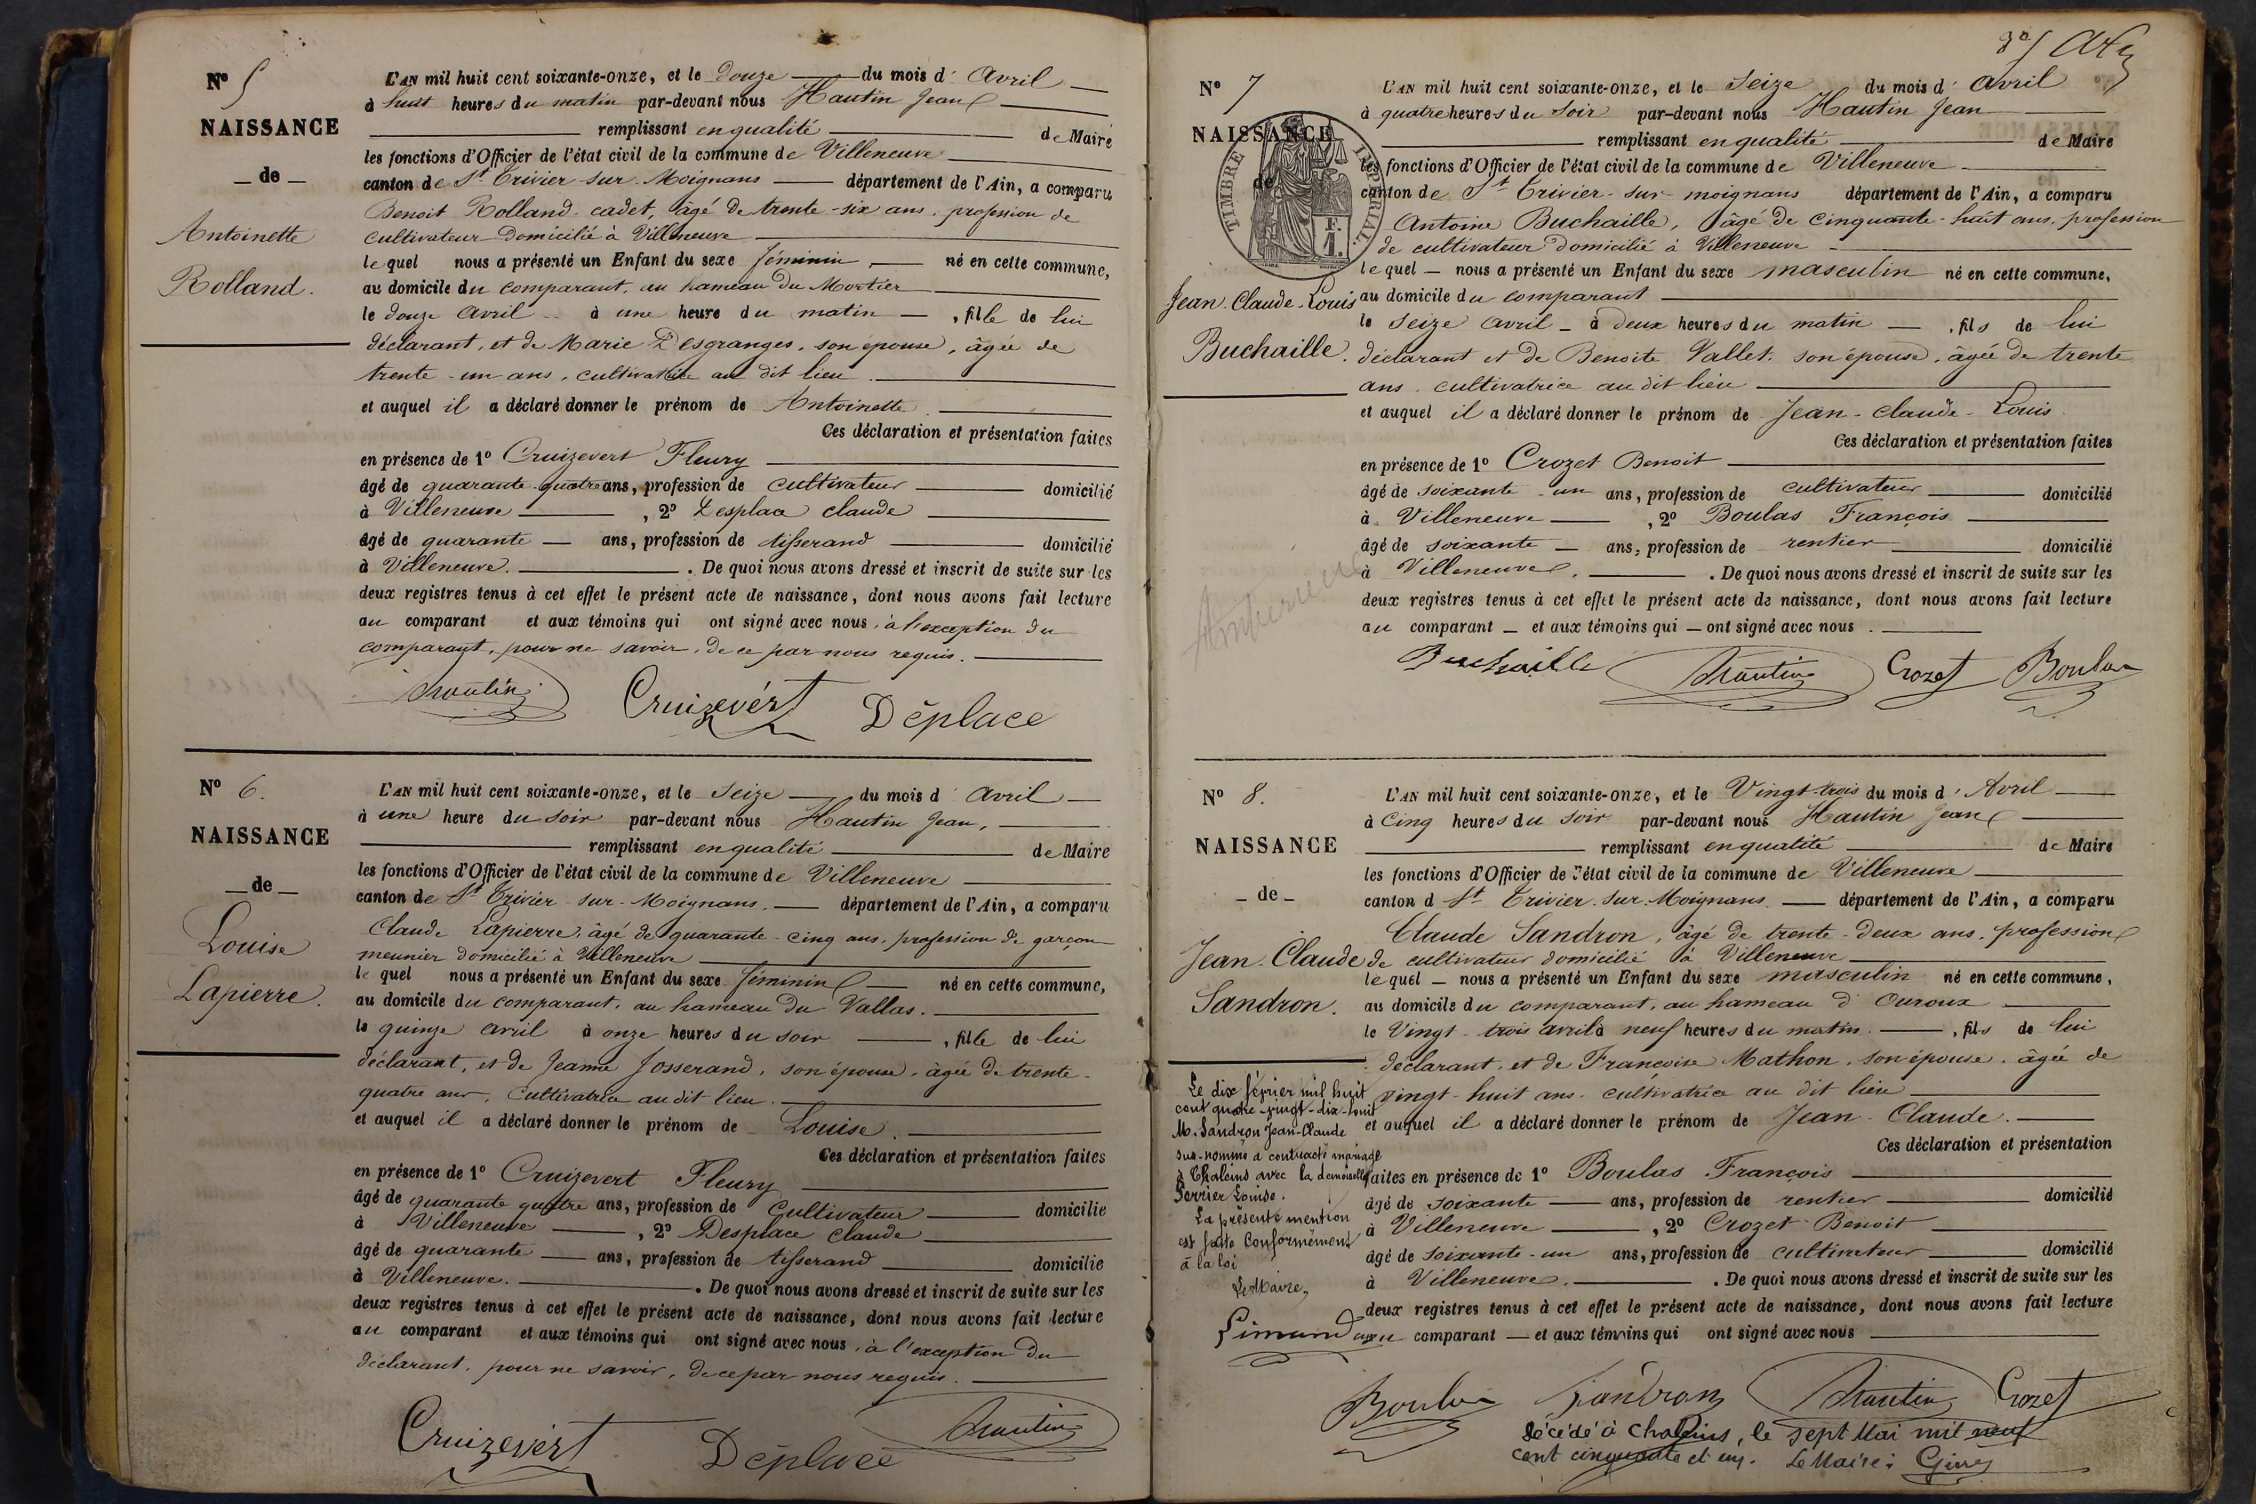 Nº 5
NAISSANCE
de
Antoinette
Rolland.
L'AN mil huit cent soixante-onze, et le douze du mois d' Avril
à huit heures du matin par-devant nous Hautin Jean
remplissant en qualité de Maire
les fonctions d'Officier de l'état civil de la commune de Villeneuve
canton de St Trivier-sur-Moignans département de l'Ain, a comparu
Benoit Rolland cadet, âgé de trente-six ans, profession de
cultivateur domicilié à Villeneuve
lequel nous a présenté un Enfant du sexe féminin né en cette commune,
au domicile du comparant, au hameau du Mortier
le douze avril à une heure du matin , fille de lui
déclarant, et de Marie Desgranges, son épouse, âgée de
trente-un ans, cultivatrice au dit lieu.
et auquel il a déclaré donner le prénom de Antoinette.
Ces déclaration et présentation faites
en présence de 1º Cruizevert Fleury
âgé de quarante-quatre ans, profession de cultivateur domicilié
à Villeneuve , 2º Desplace Claude
âgé de quarante ans, profession de tisserand domicilié
à Villeneuve. . De quoi nous avons dressé et inscrit de suite sur les
deux registres tenus à cet effet le présent acte de naissance, dont nous avons fait lecture
au comparant et aux témoins qui ont signé avec nous, à l'exception du
comparant, pour ne savoir, de ce par nous requis.
Hautin Cruizevért Déplace
Nº 6.
NAISSANCE
de
Louise
Lapierre.
L'AN mil huit cent soixante-onze, et le Seize du mois d' Avril
à une heure du soir par-devant nous Hautin Jean,
remplissant en qualité de Maire
les fonctions d'Officier de l'état civil de la commune de Villeneuve
canton de St Trivier-sur-Moignans. département de l'Ain, a comparu
Claude Lapierre, âgé de quarante-cinq ans, profession de garçon
meunier domicilié à Villeneuve
lequel nous a présenté un Enfant du sexe féminin né en cette commune,
au domicile du comparant, au hameau du Vallas.
le quinze avril à onze heures du soir , fille de lui
déclarant, et de Jeanne Josserand, son épouse, âgée de trente-
quatre ans, cultivatrice au dit lieu.
et auquel il a déclaré donner le prénom de Louise.
Ces déclaration et présentation faites
en présence de 1º Cruizevert Fleury
âgé de quarante quatre ans, profession de cultivateur domicilié
à Villeneuve , 2º Desplace Claude
âgé de quarante ans, profession de tisserand domicilié
à Villeneuve. . De quoi nous avons dressé et inscrit de suite sur les
deux registres tenus à cet effet le présent acte de naissance, dont nous avons fait lecture
au comparant et aux témoins qui ont signé avec nous, à l'exception du
déclarant, pour ne savoir, de ce par nous requis.
Cruizevért Déplace Hautin
Nº 7
NAISSANCE
de
TIMBRE IMPÉRIAL
F.
1.
Jean-Claude-Louis
Buchaille.
L'AN mil huit cent soixante-onze, et le Seize du mois d' Avril
à quatre heures du soir par-devant nous Hautin Jean
remplissant en qualité de Maire
les fonctions d'Officier de l'état civil de la commune de Villeneuve
canton de St Trivier-sur-moignans département de l'Ain, a comparu
Antoine Buchaille, âgé de cinquante-huit ans, profession
de cultivateur domicilié à Villeneuve
lequel nous a présenté un Enfant du sexe masculin né en cette commune,
au domicile du comparant
le seize avril à deux heures du matin , fils de lui
déclarant et de Benoite Vallet, son épouse, âgée de trente
ans, cultivatrice au dit lieu
et auquel il a déclaré donner le prénom de Jean-Claude-Louis
Ces déclaration et présentation faites
en présence de 1º Crozet Benoit
âgé de soixante-un ans, profession de cultivateur domicilié
à Villeneuve , 2º Boulas François
âgé de soixante ans, profession de rentier domicilié
à Villeneuve. . De quoi nous avons dressé et inscrit de suite sur les
deux registres tenus à cet effet le présent acte de naissance, dont nous avons fait lecture
au comparant et aux témoins qui ont signé avec nous.
Buchaille Hautin Crozet Boulas
Nº 8.
NAISSANCE
de
Jean-Claude
Sandron.
L'AN mil huit cent soixante-onze, et le Vingt-trois du mois d' Avril
à Cinq heures du soir par-devant nous Hautin Jean
remplissant en qualité de Maire
les fonctions d'Officier de l'état civil de la commune de Villeneuve
canton d St Trivier-sur-Moignans département de l'Ain, a comparu
Claude Sandron, âgé de trente-deux ans, profession
de cultivateur domicilié à Villeneuve
lequel nous a présenté un Enfant du sexe masculin né en cette commune,
au domicile du comparant, au hameau d'Ouroux
le Vingt-trois avril à neuf heures du matin. , fils de lui
déclarant, et de Françoise Mathon, son épouse, âgée de
vingt-huit ans, cultivatrice au dit lieu
et auquel il a déclaré donner le prénom de Jean-Claude.
Ces déclaration et présentation
faites en présence de 1º Boulas François
âgé de soixante ans, profession de rentier domicilié
à Villeneuve , 2º Crozet Benoit
âgé de soixante-un ans, profession de cultivateur domicilié
à Villeneuve. . De quoi nous avons dressé et inscrit de suite sur les
deux registres tenus à cet effet le présent acte de naissance, dont nous avons fait lecture
au comparant et aux témoins qui ont signé avec nous
Le dix février mil huit
cent quatre-vingt-dix-huit
M. Sandron Jean-Claude
sus-nommé a contracté mariage
à Chaleins avec la demoiselle
Perrier Louise.
La présente mention
est faite Conformément
à la loi
Le Maire,
Boulas Sandron Hautin Crozet
Décédé à Chaleins, le sept Mai mil neuf
cent cinquante et un. Le Maire: